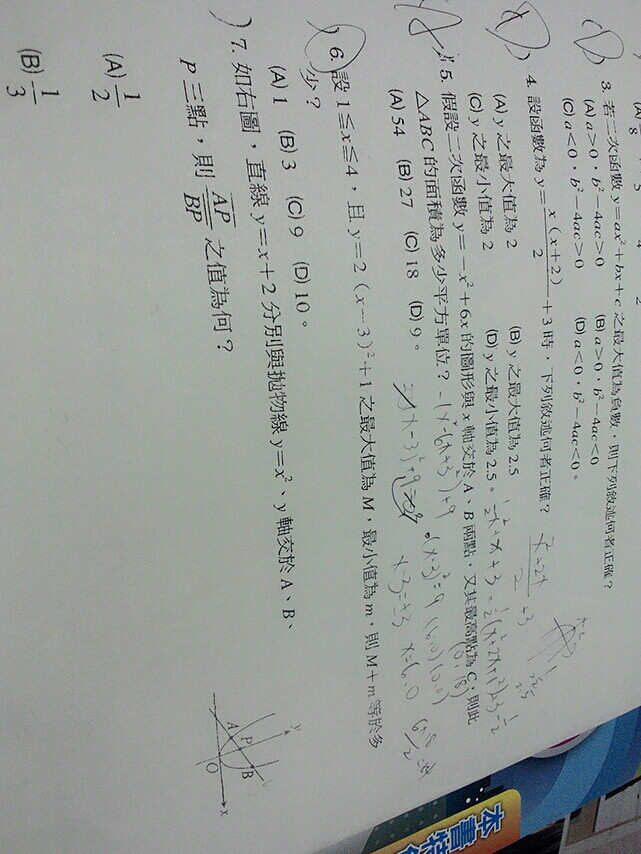 3. 若二次函數 y=ax²+bx+c 之最大值為負數，則下列敘述何者正確？
(A) a>0，b²−4ac>0 (B) a>0，b²−4ac<0
(C) a<0，b²−4ac>0 (D) a<0，b²−4ac<0。
4. 設函數為 y=x(x+2)/2+3 時，下列敘述何者正確？
(A) y 之最大值為 2 (B) y 之最大值為 2.5
(C) y 之最小值為 2 (D) y 之最小值為 2.5。
5. 假設二次函數 y=−x²+6x 的圖形與 x 軸交於 A、B 兩點，又其最高點為 C；則此
△ABC 的面積為多少平方單位？
(A) 54 (B) 27 (C) 18 (D) 9。
6. 設 1≦x≦4，且 y=2(x−3)²+1 之最大值為 M，最小值為 m，則 M+m 等於多
少？
(A) 1 (B) 3 (C) 9 (D) 10。
7. 如右圖，直線 y=x+2 分別與拋物線 y=x²、y 軸交於 A、B、
P 三點，則 AP/BP 之值為何？
y
A
P
B
O
x
(A) 1/2
(B) 1/3
x−3=±3 x=6,0
(6,0)(0,0)
本書特